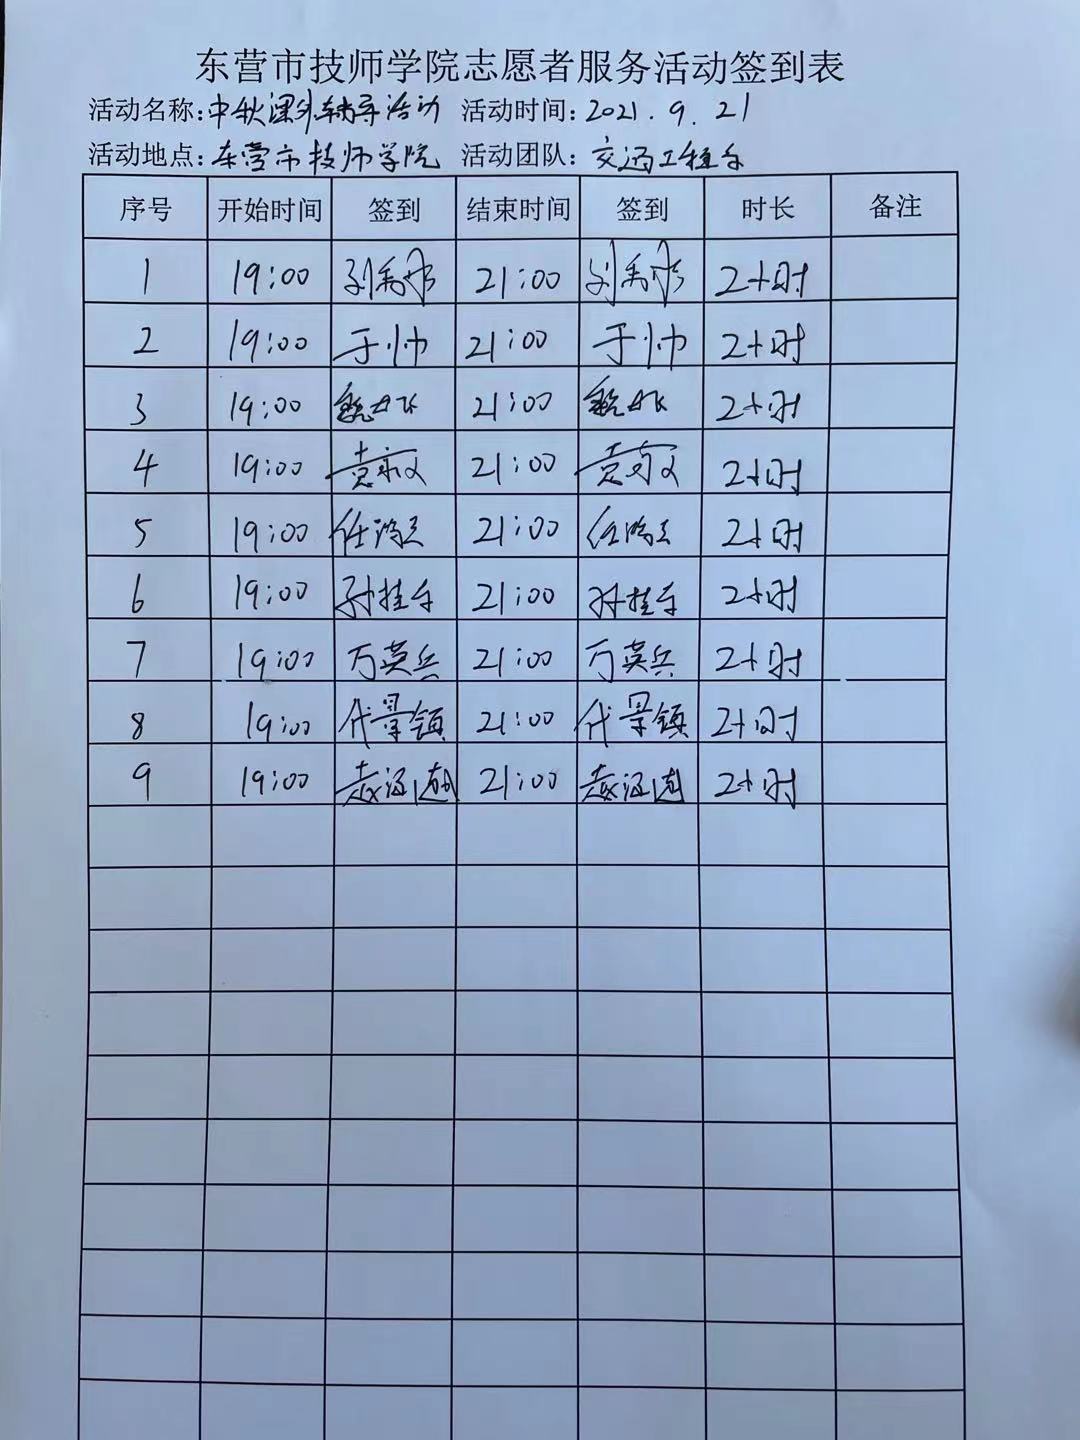 东营市技师学院志愿者服务活动签到表
活动名称:中秋课外辅导活动 活动时间:2021.9.21
活动地点:东营市技师学院 活动团队:交通工程系
序号 开始时间 签到 结束时间 签到 时长 备注
1 19:00 21:00 2小时
2 19:00 于帅 21:00 于帅 2小时
3 19:00 21:00 2小时
4 19:00 21:00 2小时
5 19:00 21:00 2小时
6 19:00 21:00 2小时
7 19:00 万英兵 21:00 万英兵 2小时
8 19:00 代景镇 21:00 代景镇 2小时
9 19:00 21:00 2小时